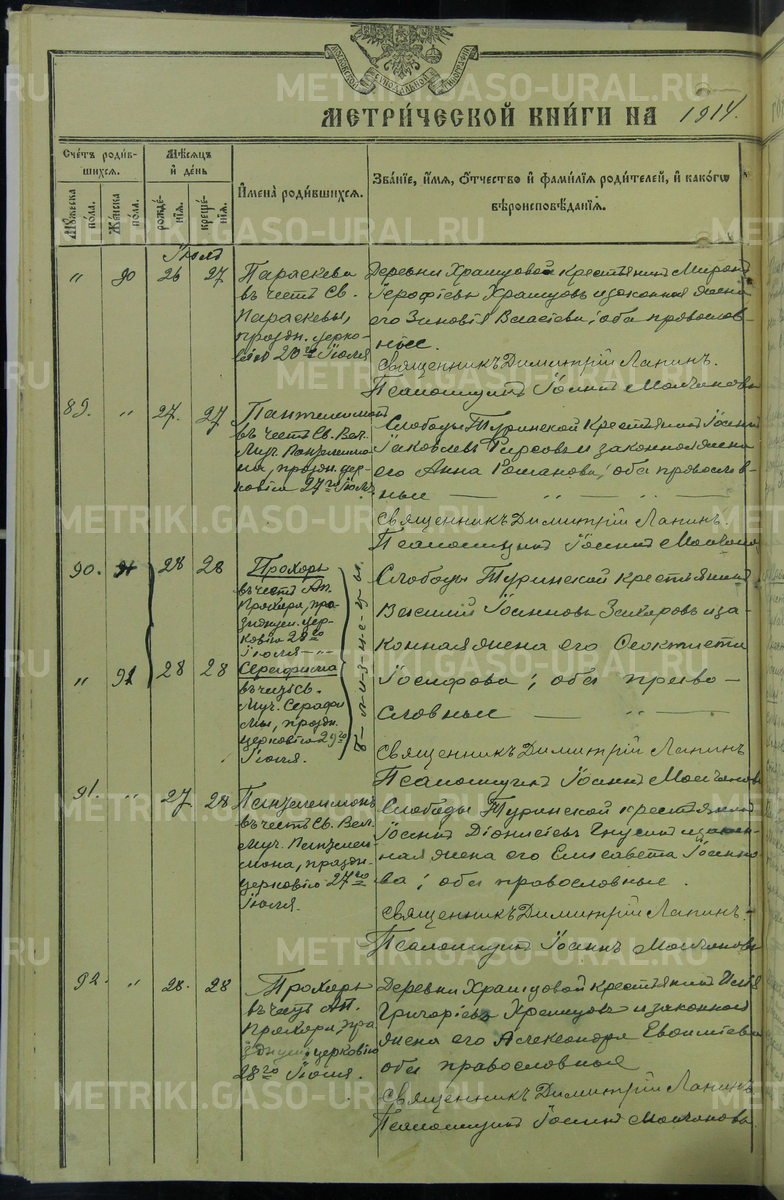 МЕТРИ́ЧЕСКОЙ КНИ́ГИ НА 1914.
Сче́тъ роди́в-
шихся.
Мѣ́сяцъ
и҆ де́нь
Му́жеска по́ла.
Же́нска по́ла.
рожде́-
нїѧ.
креще́-
нїѧ.
И҆мена̀ роди́вшихся.
Зва́нїе, и҆́мѧ, ѻ҆́тчество и҆ фами́лїѧ роди́телей, и҆ како́гѡ
вѣроисповѣ́данїѧ.
Іюль
" 90 26 27 Параскева
въ честь Св.
Параскевы,
праздн. церко-
вію 26го Іюля
Деревни Храмцовой крестьянинъ Миронъ
Іерофеевъ Храмцовъ и законная жена
его Зиновія Власіева; оба православ-
ные.
Священникъ Димитрій Лапинъ.
Псаломщикъ Іоаннъ Молчановъ
89. " 27. 27 Пантелеимонъ
въ честь Св. Вел.
Муч. Пантелеимо-
на, праздн. цер-
ковію 27го Іюля
Слободы Туринской крестьянинъ Іоаннъ
Іаковлевъ и законная жена
его Анна Романова; оба православ-
ные — " — " —
Священникъ Димитрій Лапинъ.
Псаломщикъ Іоаннъ Молчановъ
90. 28 28 Прохоръ
въ честь Ап.
Прохора, пра-
зднуем. цер-
ковію 28го
Іюля — " —
" 91 28 28 Серафима
въ честь Св.
Муч. Серафи-
мы, праздн.
церковію 29го
Іюля.
б-л-и-з-н-е-ц-ы.
Слободы Туринской крестьянинъ
Василій Іоанновъ Захаровъ и за-
конная жена его Феоктиста
Іосифова; оба право-
славные — " —
Священникъ Димитрій Лапинъ
Псаломщикъ Іоаннъ Молчановъ
91. " 27. 28 Пантелеимонъ
въ честь Св. Вел.
Муч. Пантелеи-
мона, праздн.
церковію 27го
Іюля.
Слободы Туринской крестьянинъ
Іоаннъ Діонисіевъ и закон-
ная жена его Елисавета Іоанно-
ва; оба православные.
Священникъ Димитрій Лапинъ.
Псаломщикъ Іоаннъ Молчановъ
92. " 28. 28 Прохоръ
въ честь Ап.
Прохора, пра-
зднуем. церковію
28го Іюля.
Деревни Храмцовой крестьянинъ
Григоріевъ Храмцовъ и законная
жена его Александра Евфиміева
оба православные
Священникъ Димитрій Лапинъ
Псаломщикъ Іоаннъ Молчановъ.
METRIKI.GASO-URAL.RU